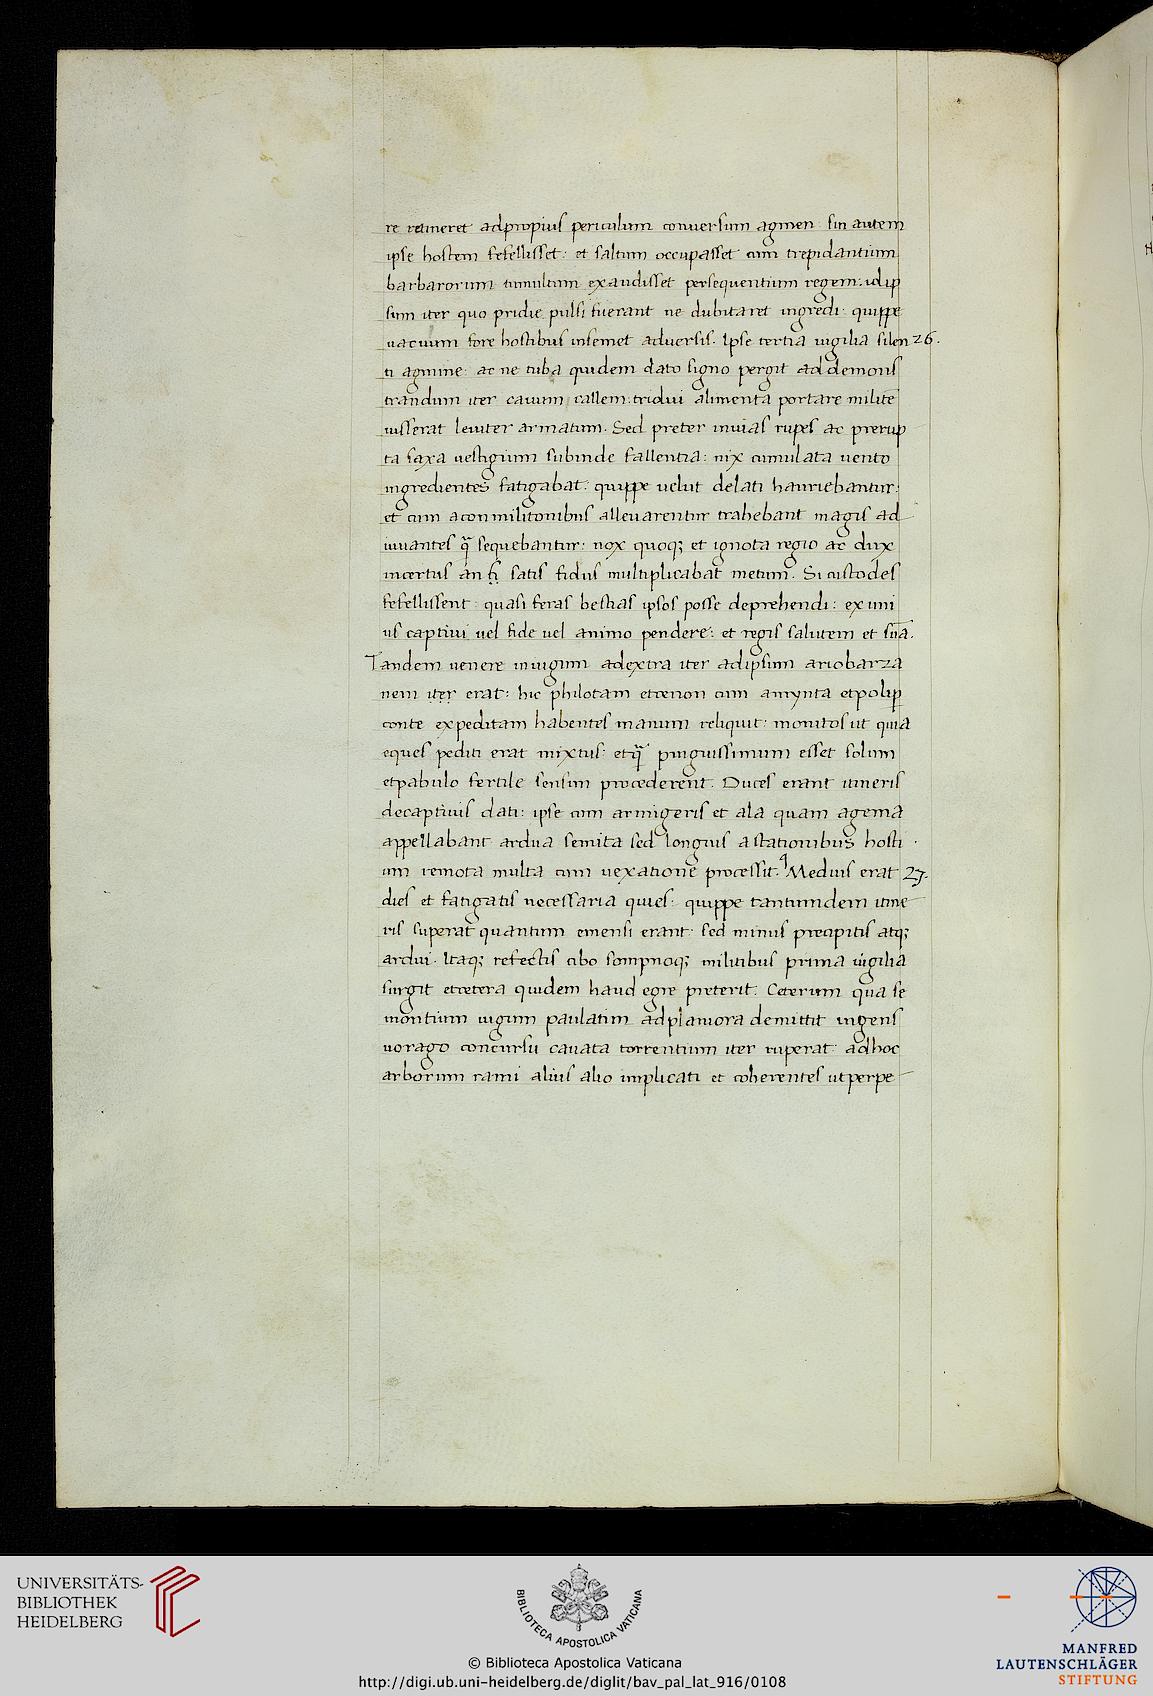 re retineret adpropius periculum conuersum agmen: sin autem
ipse hostem fefellisset: et saltum occupasset cum trepidantium
barbarorum tumultum exaudisset persequentium regem: idip
sum iter quo pridie pulsi fuerant ne dubitaret ingredi: quippe
uacuum fore hostibus insemet aduersis. Ipse tertia uigilia silen 26.
ti agmine: ac ne tuba quidem dato signo pergit ad demons
trandum iter cauum callem: tridui alimenta portare militē
iusserat leuiter armatum. Sed preter inuias rupes ac prerup
ta saxa uestigium subinde fallentia: nix cumulata uento
ingredientes fatigabat: quippe uelut delati hauriebantur:
et cum aconmilitonibus alleuarentur trahebant magis ad
iuuantes q̄ sequebantur: nox quoq; et ignota regio ac dux
incertus an satis fidus multiplicabat metum. Si custodes
fefellissent: quasi feras bestias ipsos posse deprehendi: ex uni
us captiui uel fide uel animo pendere: et regis salutem et suā.
Tandem uenere iniugum adextra iter adipsum ariobarza
nem iter erat: hic philotam etcenon cum amynta etpolip̄
conte expeditam habentes manum reliquit: monitos ut quia
eques pediti erat mixtus: etq̄ pinguissimum esset solum
etpabulo fertile sensim procederent. Duces erant itineris
decaptiuis dati: ipse cum armigeris et ala quam agema
appellabant ardua semita sed longius astationibus hosti
um remota multa cum uexatione processit. Medius erat 27.
dies et fatigatis necessaria quies: quippe tantumdem itine
ris superat quantum emensi erant: sed minus precipitis atq;
ardui. Itaq; refectis cibo sompnoq; militibus prima uigilia
surgit etcetera quidem haud egre preterit. Ceterum qua se
montium iugum paulatim adplaniora demittit ingens
uorago concursu cauata torrentium iter ruperat: adhoc
arborum rami alius alio implicati et coherentes utperpe
UNIVERSITÄTS-
BIBLIOTHEK
HEIDELBERG
BIBLIOTECA APOSTOLICA VATICANA
© Biblioteca Apostolica Vaticana
http://digi.ub.uni-heidelberg.de/diglit/bav_pal_lat_916/0108
MANFRED
LAUTENSCHLÄGER
STIFTUNG